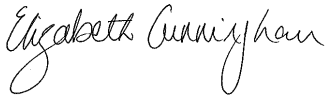 Elizabeth Cunningham